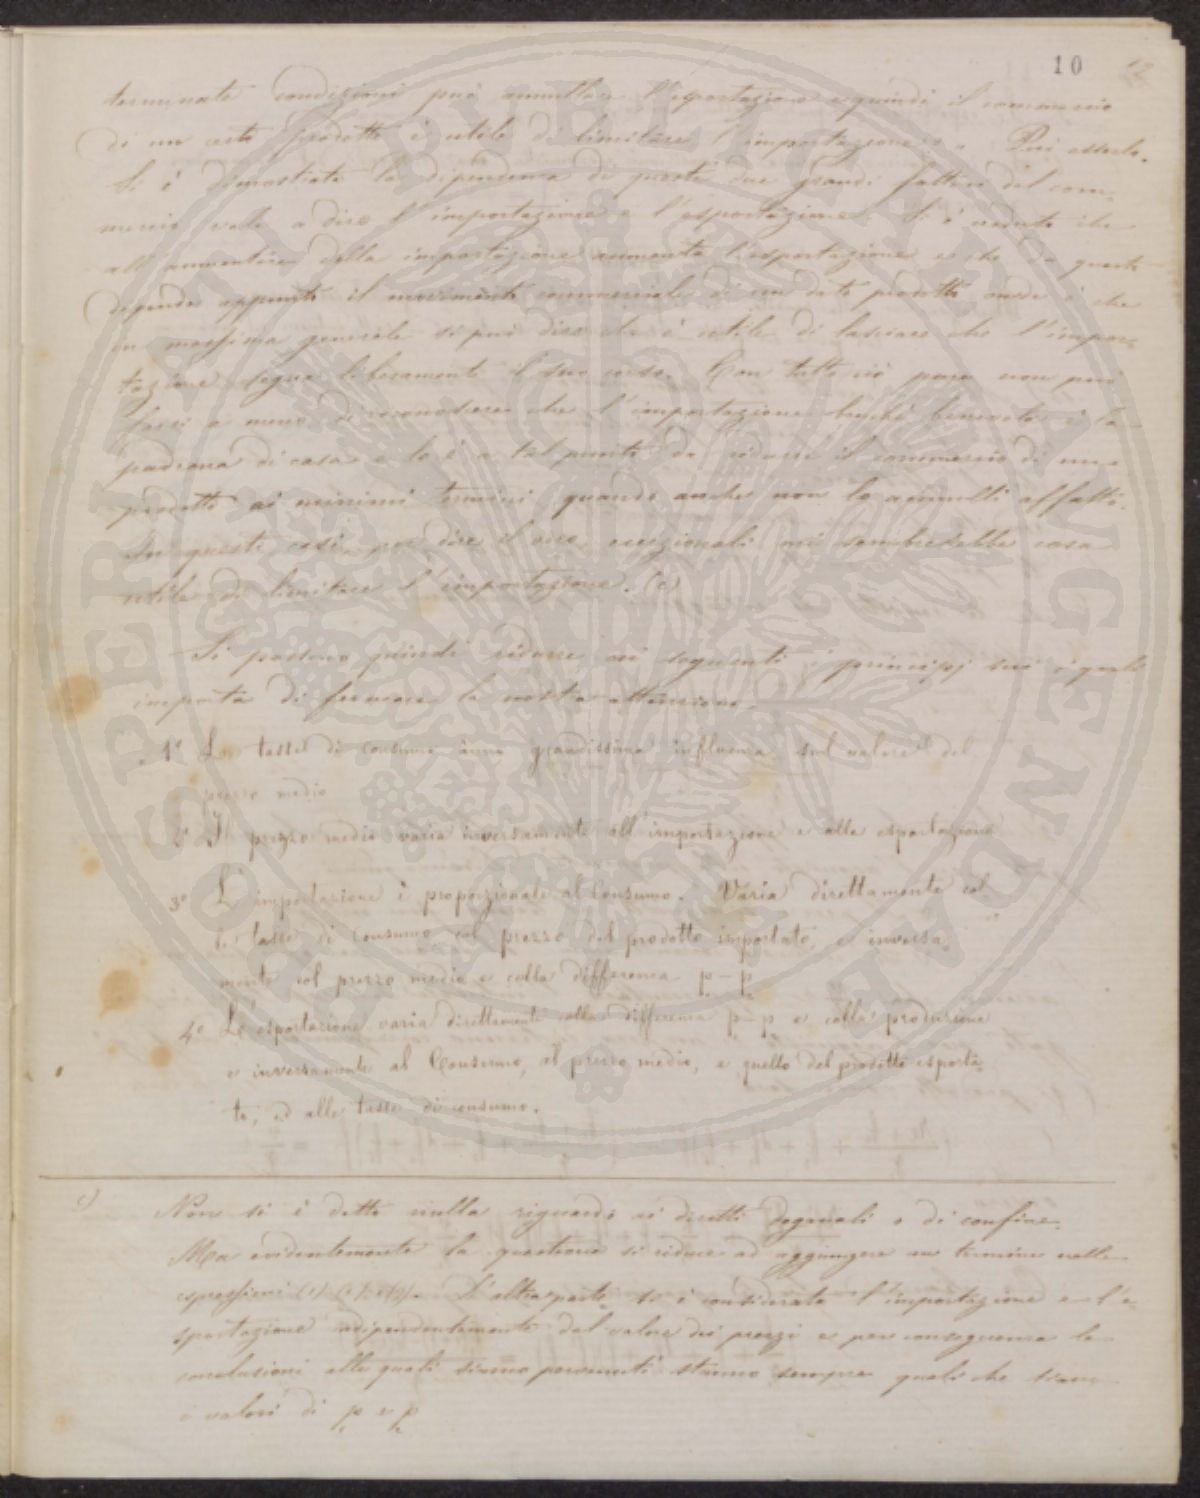 10
terminate condizioni può annullare l'esportazione e quindi il commercio
di un certo prodotto è utile di limitare l'importazione. Può esserlo.
Si è dimostrato la dipendenza di questi due grandi fattori del com-
mercio vale a dire l'importazione e l'esportazione. Si è veduto che
all'aumentare della importazione aumenta l'esportazione e che da questo
dipende appunto il movimento commerciale di un dato prodotto onde è che
in massima generale si può dire che è utile di lasciare che l'impor-
tazione segua liberamente il suo corso. Con tutto ciò pure non può
farsi a meno di riconoscere che l'importazione benchè è la
padrona di casa e lo è a tal punto da ridurre il commercio di un
prodotto ai minimi termini quando anche non lo annulli affatto.
In questi casi, per dire il vero, eccezionali mi sembrerebbe cosa
utile di limitare l'importazione. (c)
Si possono quindi ridurre ai seguenti i principj sui quali
importa di fermare la nostra attenzione.
1° Le tasse di consumo ànno grandissima influenza sul valore del
prezzo medio
2° Il prezzo medio varia inversamente all'importazione e alla esportazione
3° L'importazione è proporzionale al Consumo. Varia direttamente col
le tasse di Consumo col prezzo del prodotto importato, e inversa
mente col prezzo medio e colla differenza p1 – p2
4° L'esportazione varia direttamente colla differenza p1 – p2 e colla produzione
e inversamente al Consumo, al prezzo medio, e quello del prodotto esporta
to, ed alle tasse di consumo.
c) Non si è detto nulla riguardo ai diritti doganali o di confine.
Ma evidentemente la questione si riduce ad aggiungere un termine nelle
espressioni D'altra parte si è considerata l'importazione e l'e-
sportazione indipendentemente dal valore dei prezzi e per conseguenza le
conclusioni alle quali siamo pervenuti stanno sempre quali che siano
i valori di p1 e p2
SOSPERNATI PUBLICE LUGENDAE